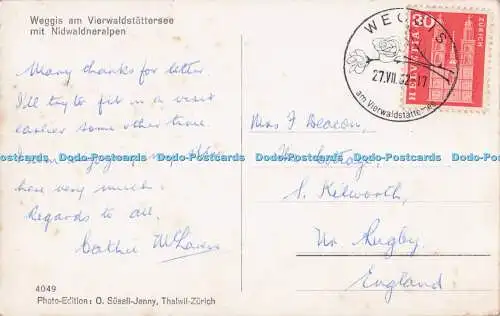 Weggis am Vierwaldstättersee
mit Nidwaldneralpen
Many thanks for letter.
I'll try to fit in a visit
earlier some other time.
here very much.
Regards to all.
4049
Photo-Edition: O. Süssli-Jenny, Thalwil-Zürich
WEGGIS
27.VII.62-17
am Vierwaldstättersee
30
HELVETIA
ZÜRICH
Mrs F Deacon,
S. Kilworth,
Nr Rugby.
England
Dodo-Postcards Dodo-Postcards Dodo-Postcards Dodo-Postcards